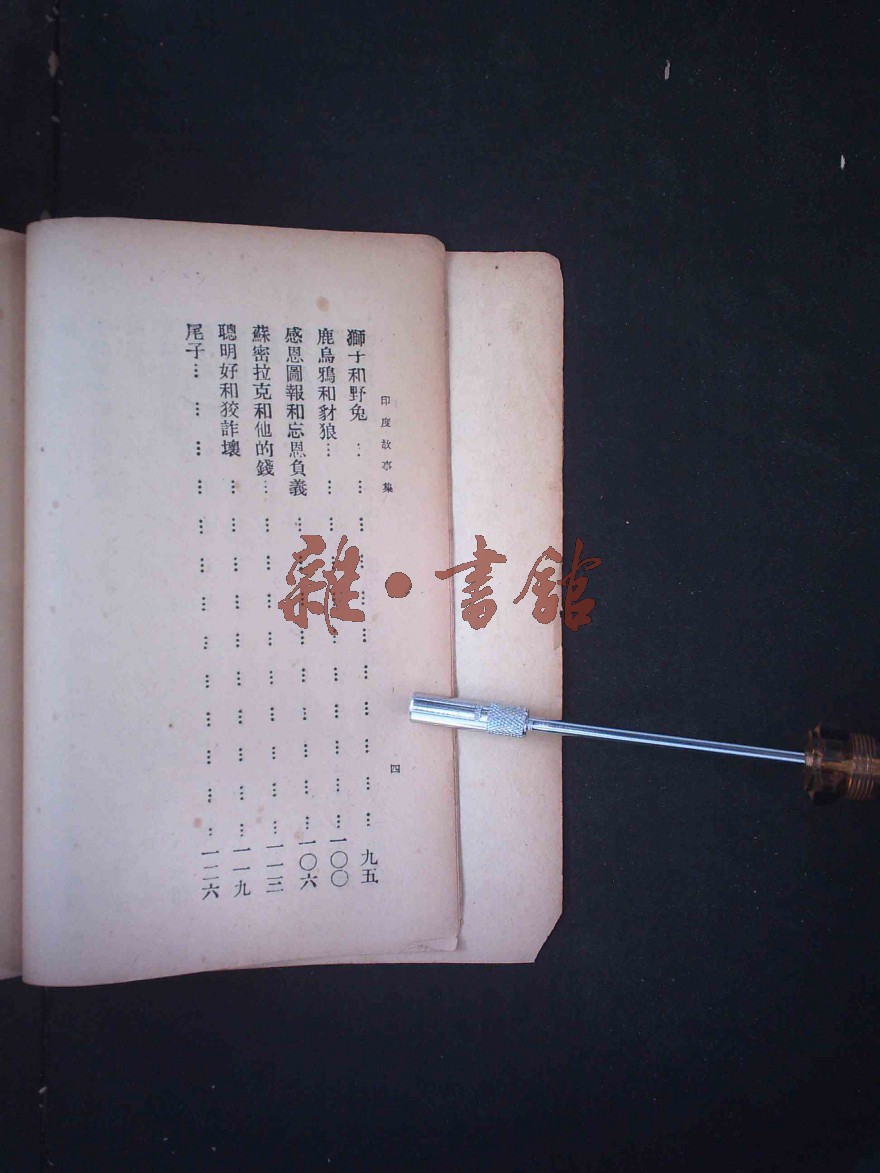 印度故事集
四
獅子和野兔………………………………九五
鹿烏鴉和豺狼………………………………一〇〇
感恩圖報和忘恩負義………………………………一〇六
蘇密拉克和他的錢………………………………一一三
聰明好和狡詐壞………………………………一一九
尾子………………………………一二六
雜·書館